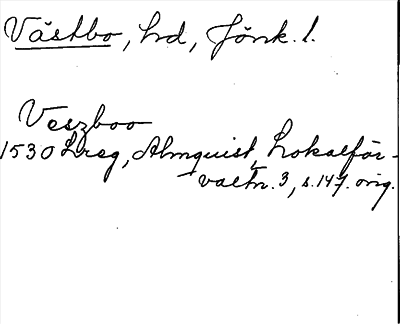 Västbo, hd, Jönk. l.
Veszboo
1530 Lreg, Almquist, Lokalför-
valtn. 3, s. 147. orig.